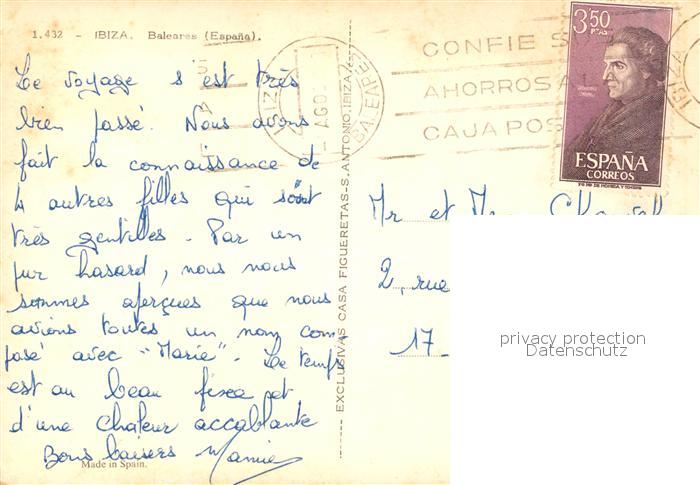 1.432 - IBIZA. Baleares (España).
Le voyage s'est très
bien passé. Nous avons
fait la connaissance de
4 autres filles qui sont
très gentilles. Par un
pur hasard, nous nous
sommes aperçues que nous
avions toutes un nom com
posé avec "Marie". Le temps
est au beau fixe et
d'une chaleur accablante
Bons baisers
Made in Spain.
EXCLUSIVAS CASA FIGUERETAS-S. ANTONIO, IBIZA
IBIZA
AGO
BALEARE
CONFIE S
AHORROS A L
CAJA POS
3,50
PTAS
ESPAÑA
CORREOS
Mr et
2, rue
17
privacy protection
Datenschutz